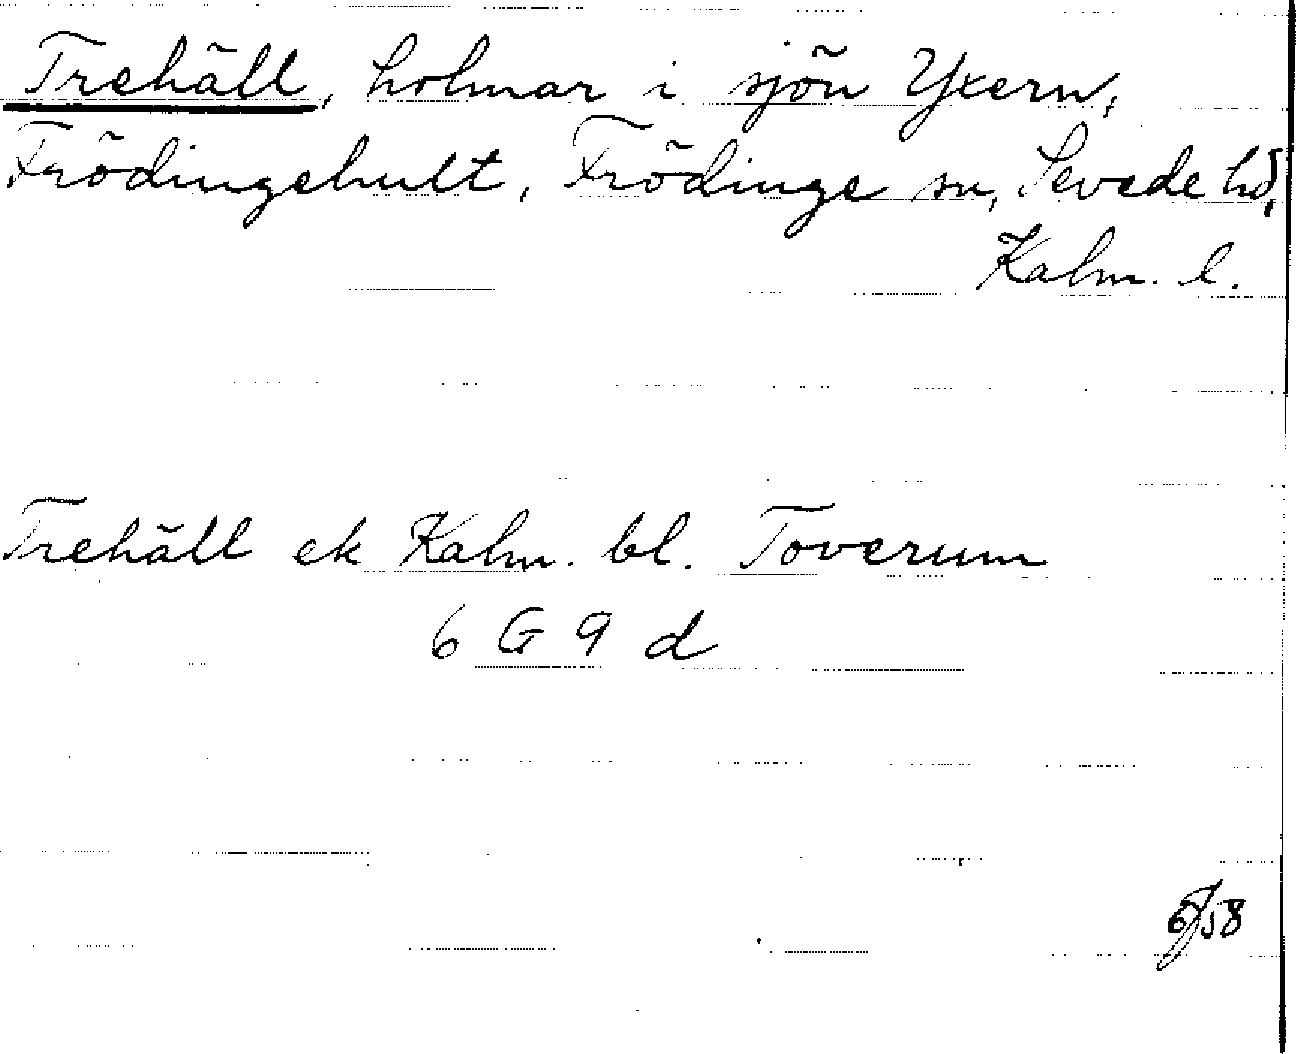 Trehäll, holmar i sjön Yxern,
Frödingehult, Frödinge sn, Sevede hd,
Kalm. l.
Trehäll ek Kalm. bl. Toverum
6 G 9 d